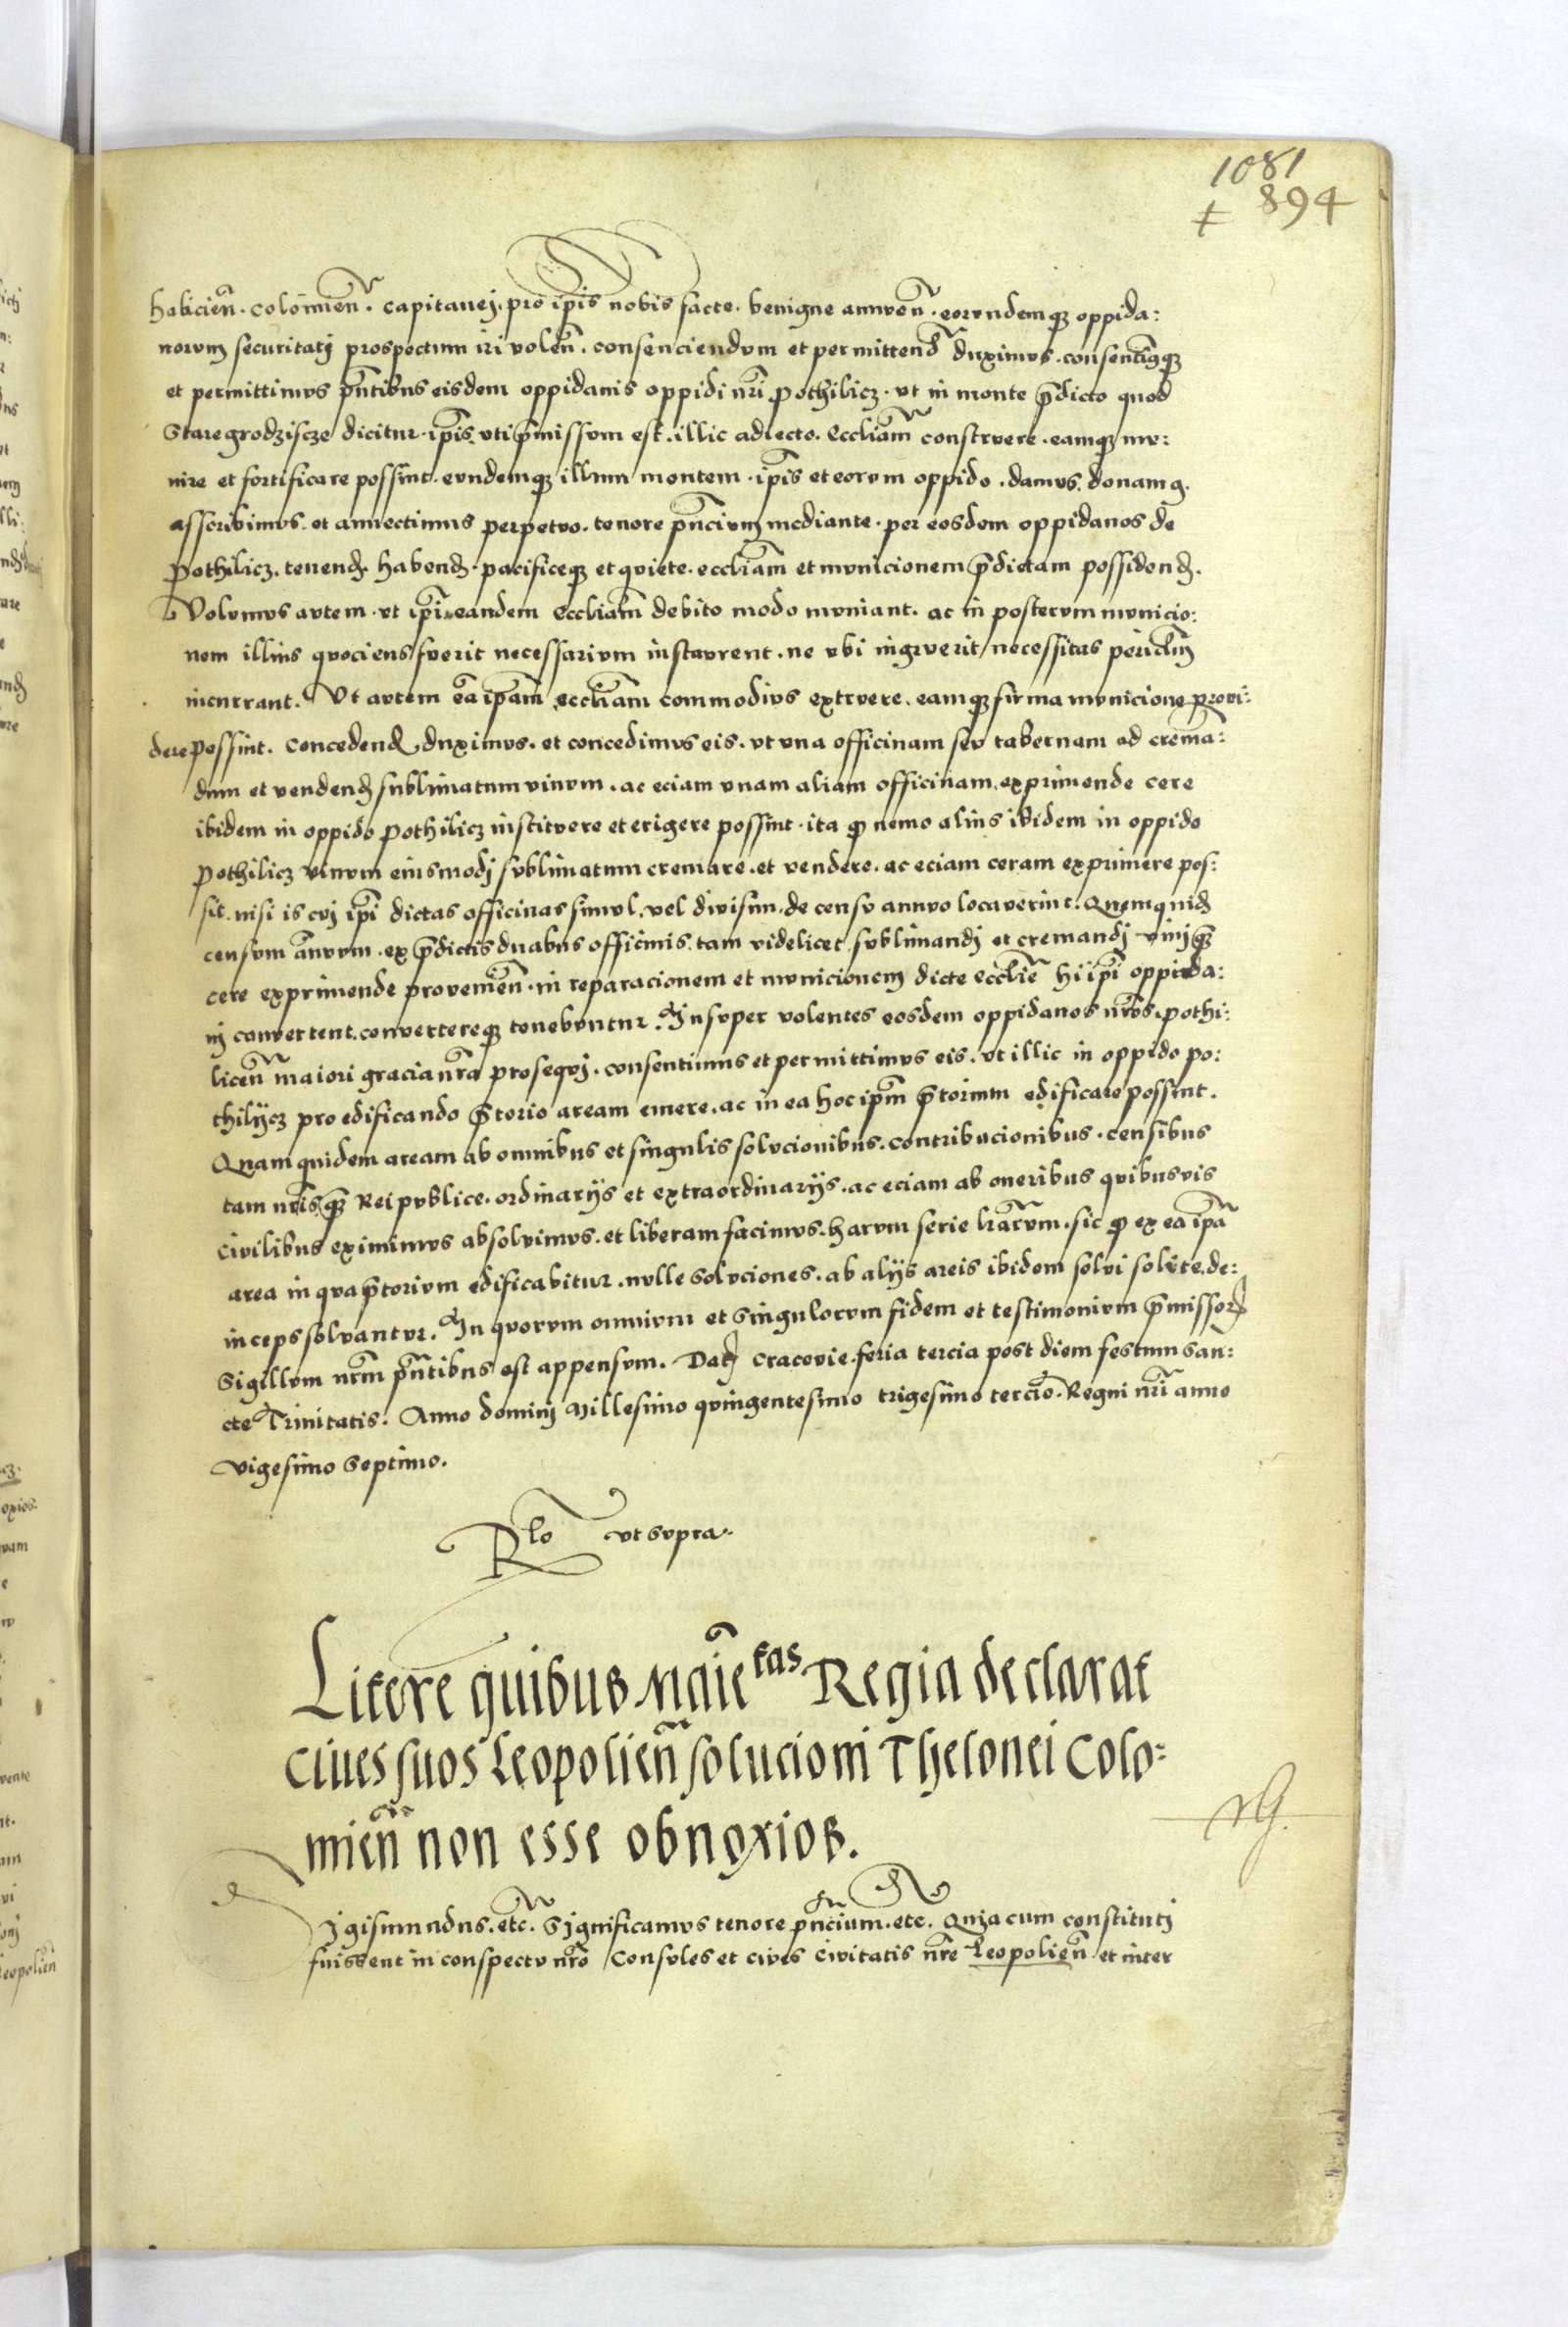 1081
894
halicien̄. colomien̄. capitanej. pro ip̄is nobis facte. benigne annuen̄. eorundemqȝ oppida:
norum securitatj prospectum iri volen̄. consenciendum et permittend̄ duximus. consentimusqȝ
et permittimus p̄ntibus eisdem oppidanis oppidi n̄ri pothilicz. ut in monte p̄dicto quod
Staregrodziscze dicitur. ip̄is uti p̄missum est. illic adiecto. Eccli̅am construere. eamqȝ mu:
nire et fortificare possint. eundemqȝ illum montem. ip̄is et eorum oppido. damus. donamq.
asscribimus. et annectimus perpetuo. tenore p̄ncium mediante. per eosdem oppidanos de
pothilicz. tenend̄. habend̄. pacificeqȝ et quiete. eccli̅am et municionem p̄dictam possidend̄.
Volumus autem. ut ip̄i eandem Eccli̅am debito modo muniant. ac in posterum municio:
nem illius quociens fuerit necessarium instaurent. ne ubi ingruerit necessitas periclm̄
incurrant. Ut autem ea ip̄am eccli̅am commodius extruere. eamqȝ firma municione provi:
dere possint. concedend̄ duximus. et concedimus eis. ut una officinam seu tabernam ad crema:
dum et vendend̄ sublimatum vinum. ac eciam unam aliam officinam exprimende cere
ibidem in oppido pothilicz instituere et erigere possint. ita qd̄ nemo alius ibidem in oppido
pothilicz vinum eiusmodj sublimatum cremare. et vendere. ac eciam ceram exprimere pos:
sit. nisi is cuj ip̄i dictas officinas simul. vel divisim. de censu annuo locaverint. Quemquid̄
censum an̄uum. ex p̄dictis duabus officinis. tam videlicet sublimandj et cremandj vinj qȝ
cere exprimende provenien̄. in reparacionem et municionem dicte eccli̅e hi ip̄i oppida:
nj convertent. convertereqȝ tenebuntur. Insuper volentes eosdem oppidanos n̄ros. pothi:
licen̄ maiori gracia n̄ra prosequj. consentimus et permittimus eis. ut illic in oppido po:
thilijcz pro edificando p̄torio aream emere. ac in ea hoc ip̄m p̄torium edificare possint.
Quam quidem aream ab omnibus et singulis solucionibus. contribucionibus. censibus
tam n̄ris qȝ Reipublice. ordinarijs et extraordinarijs. ac eciam ab oneribus quibusvis
civilibus eximimus absolvimus. et liberam facimus. harum serie l̄rarum. sic qd̄ ex ea ip̄a
area in qua p̄torium edificabitur. nulle soluciones. ab alijs areis ibidem solvi solite. de:
inceps solvantur. In quorum omnium et singulorum fidem et testimonium p̄missor̄
Sigillum n̄rm p̄ntibus est appensum. Dat̄ cracovie. feria tercia post diem festum san:
cte Trinitatis. Anno dominj Millesimo quingentesimo trigesimo tercio. Regni n̄ri anno
vigesimo septimo.
Rlo ut supra.
Litere quibus Maie̅tas Regia declarat
cives suos Leopolien̄ solucioni Thelonei Colo:
mien̄ non esse obnoxios.
Sigismundus. etc̄. Significamus tenore p̄ncium. etc. Quia cum constitutj
fuissent in conspectu n̄ro Consules et cives Civitatis n̄re Leopolien̄ et inter